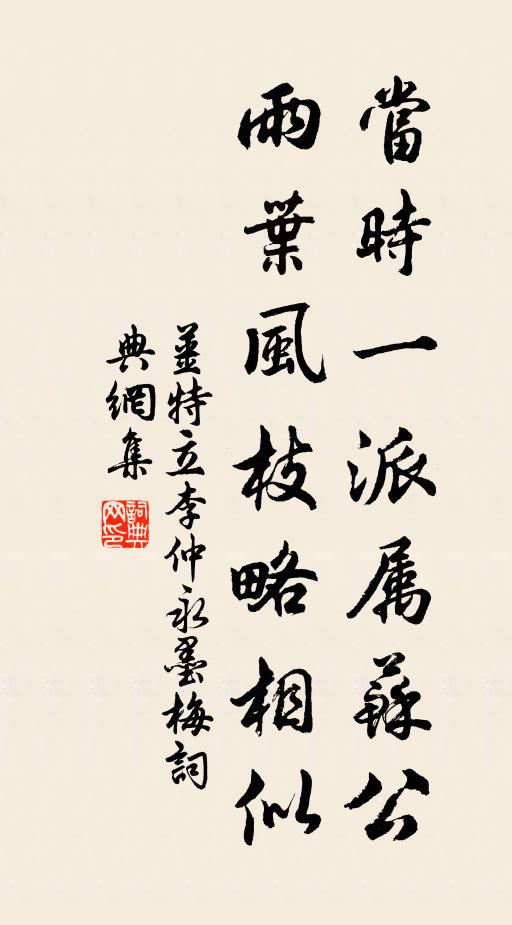 當時一派属蘇公
雨葉風枝略相似
姜特立李仲永墨梅詞
典網集
詞典网印